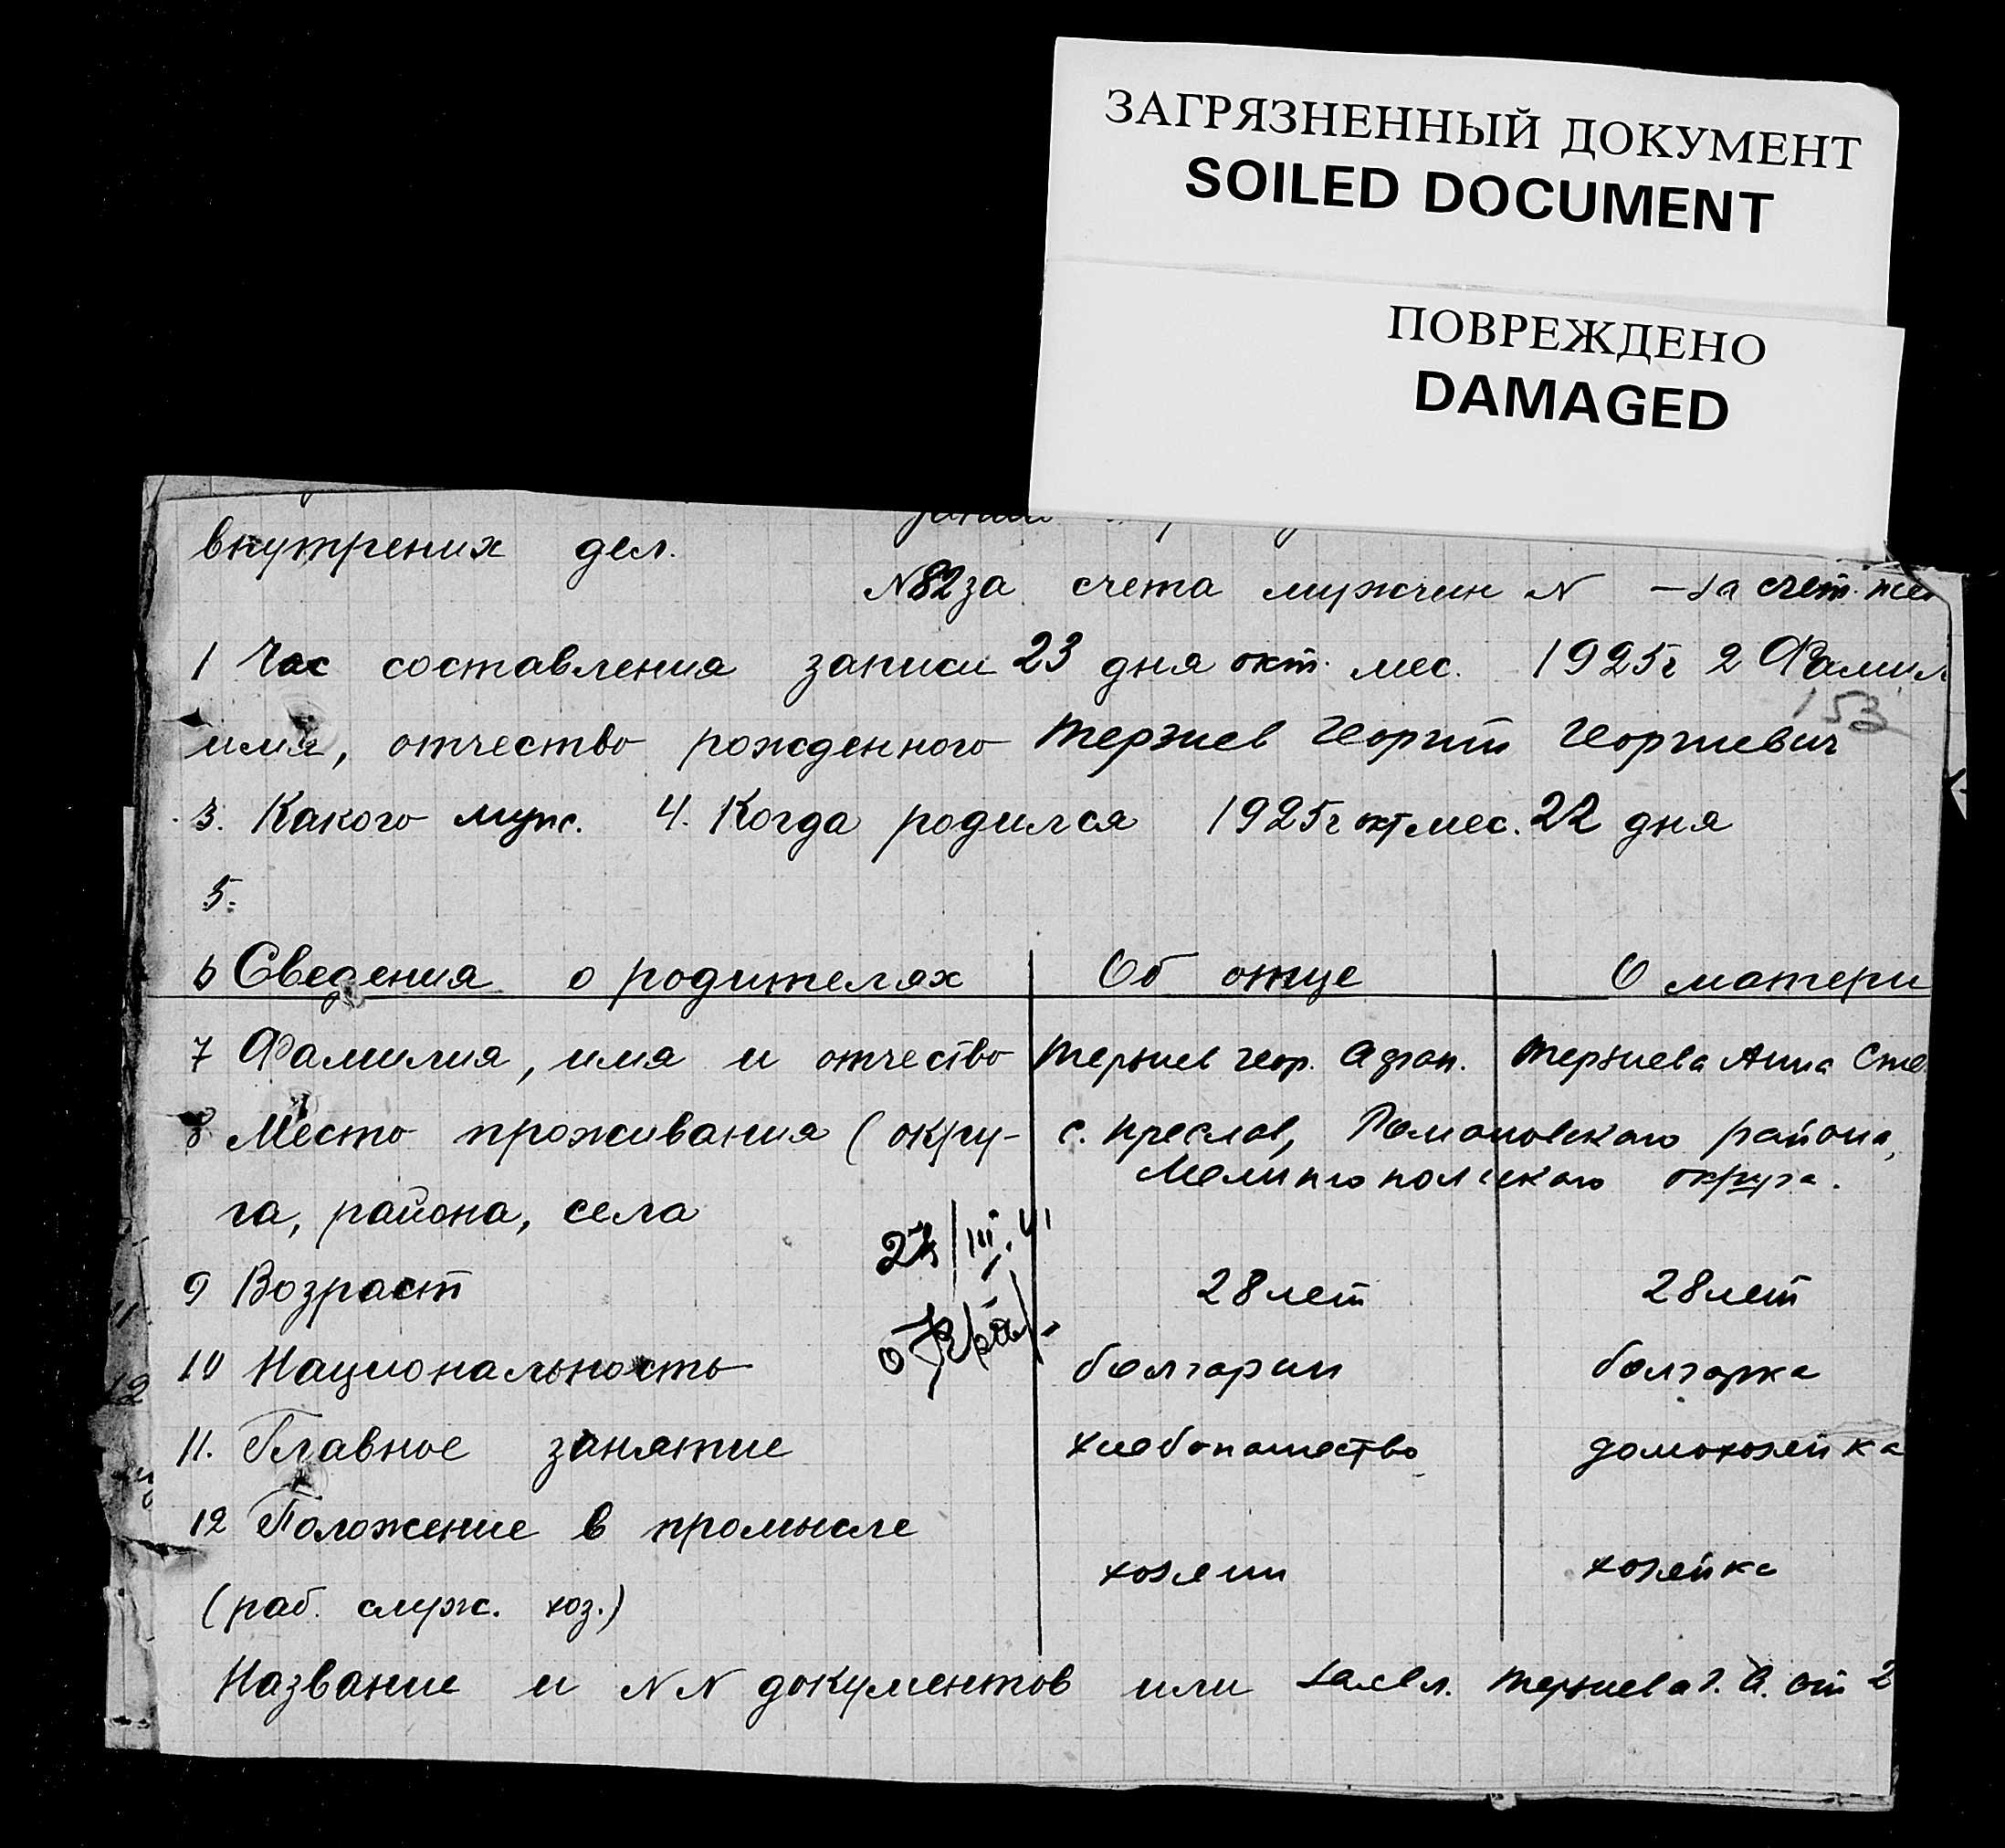 ЗАГРЯЗНЕННЫЙ ДОКУМЕНТ
SOILED DOCUMENT
ПОВРЕЖДЕНО
DAMAGED
внутрених дел.
N82 за счета мужчин N — за счет. жен
1 Час составления записи 23 дня окт. мес. 1925г 2 Фамил
153
имя, отчество рожденного Терзиев Георгий Георгиевич
3. Какого муж. 4. Когда родился 1925г окт мес. 22 дня
5.
6 Сведения о родителях Об отце О матери
7 Фамилия, имя и отчество Терзиев Геор. Терзиева Анна Сте
8 Место проживания (окру- с. Преслав, Романовского района,
Мелитопольского округа.
га, района, села
27/III.41
9 Возраст 28 лет 28 лет
10 Национальность болгарин болгарка
11. Главное занятие хлебопашество домохозяйка
12 Положение в промысле
хозяин хозяйка
(раб. служ. хоз.)
Название и NN документов или заявл. Терзиева Г. А. от 2